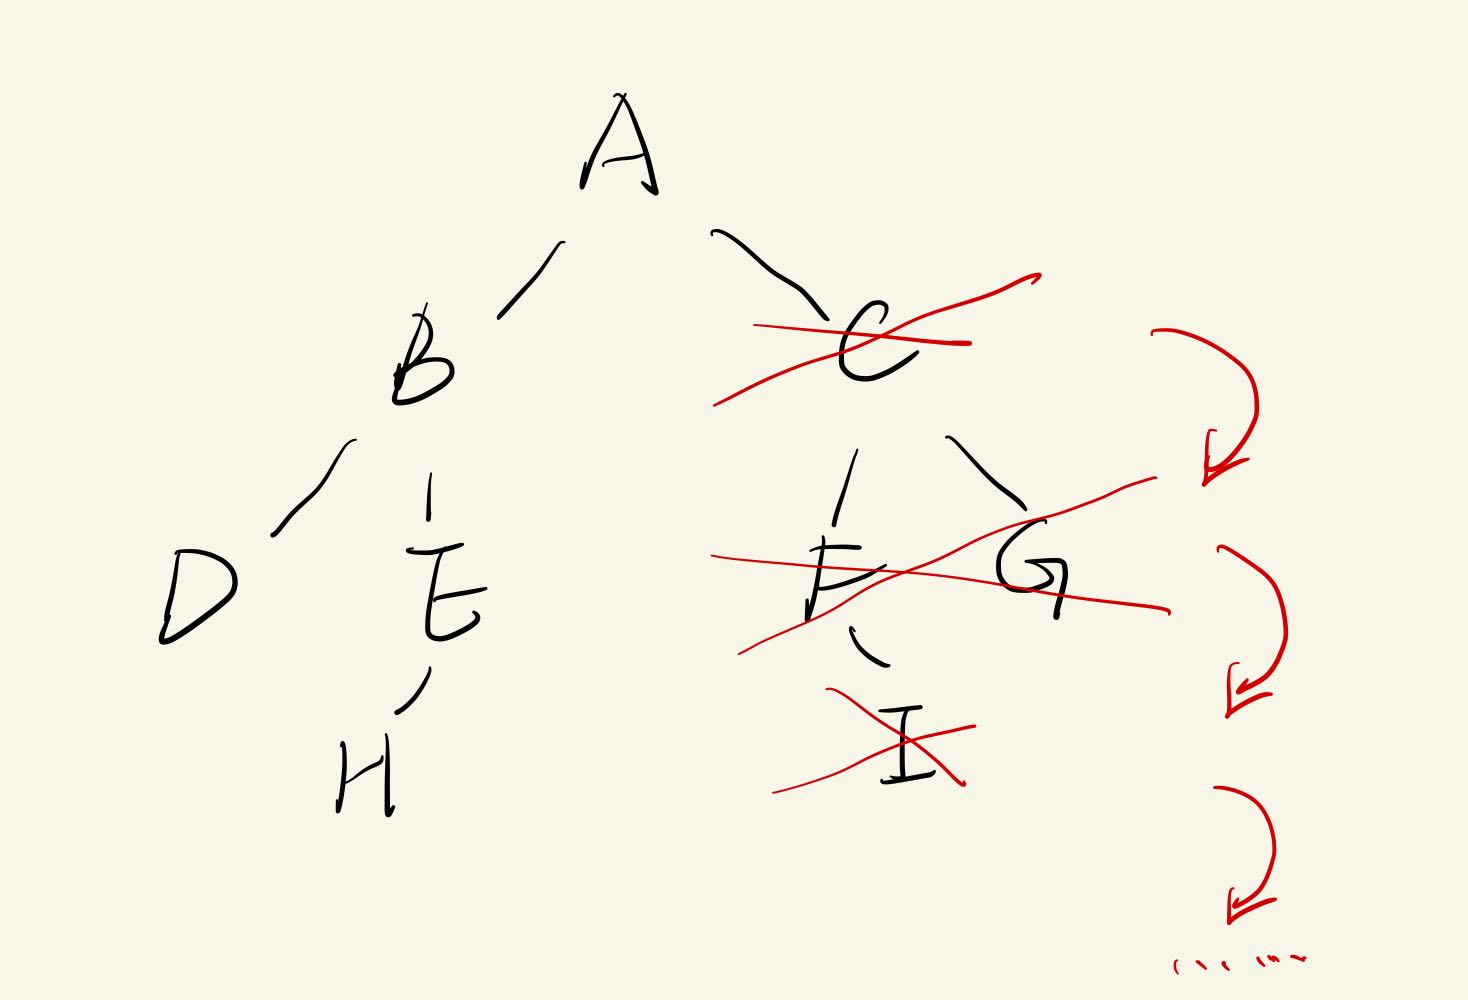 A
B C
D E F G
H I
......